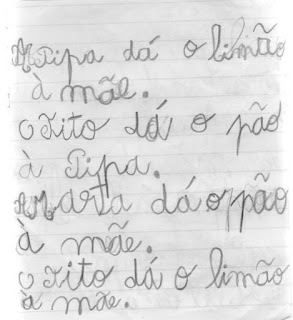 A Pipa dá o limão
à mãe.
O Tito dá o pão
à Pipa.
A Marta dá o pão
à mãe.
O Tito dá o limão
à mãe.